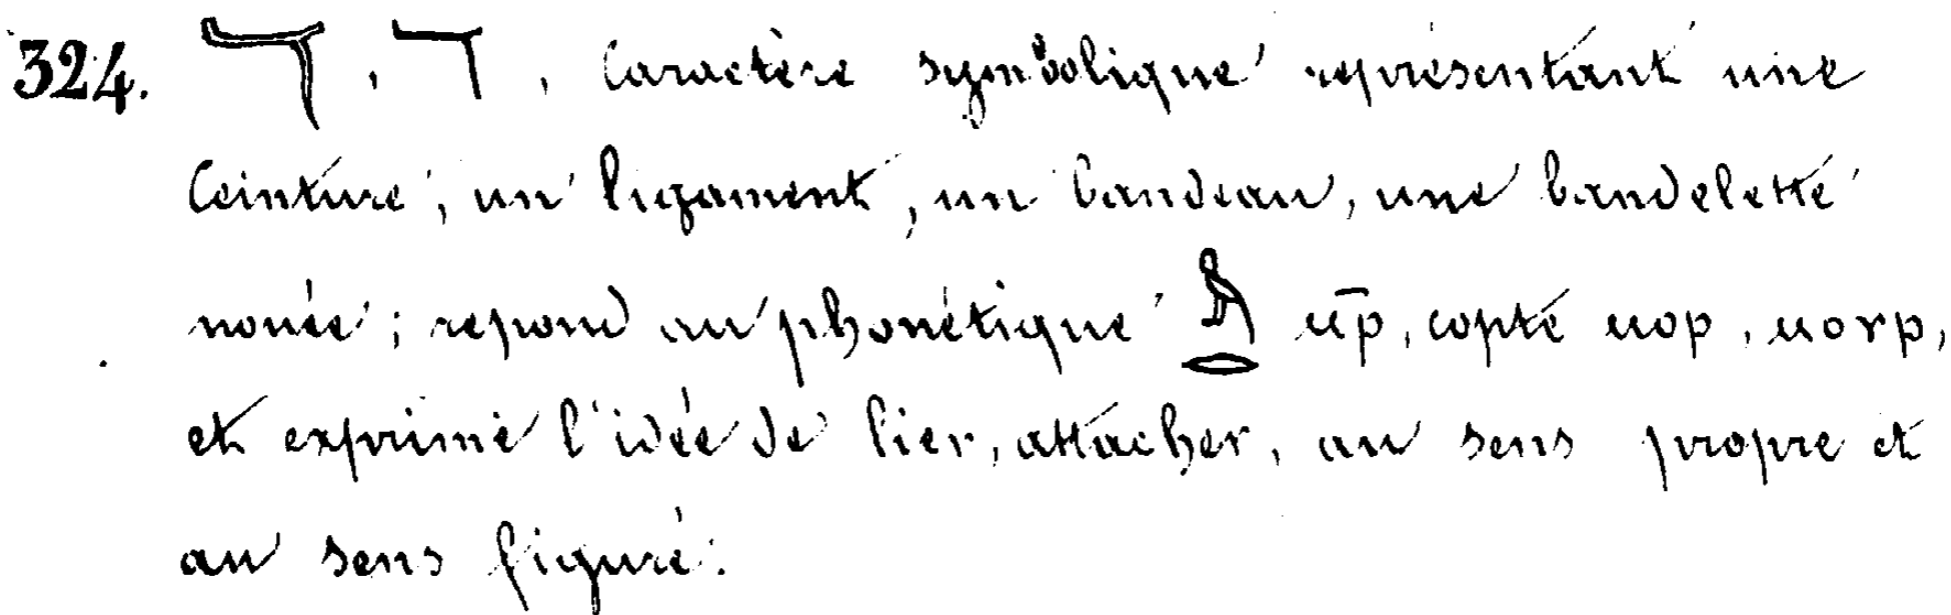 324. , , Caractère symbolique représentant une
Ceinture, un ligament, un bandeau, une bandelette
nouée; répond au phonétique ⲙⲣ̄, copte ⲙⲟⲣ, ⲙⲟⲩⲣ,
et exprime l'idée de lier, attacher, au sens propre et
au sens figuré.